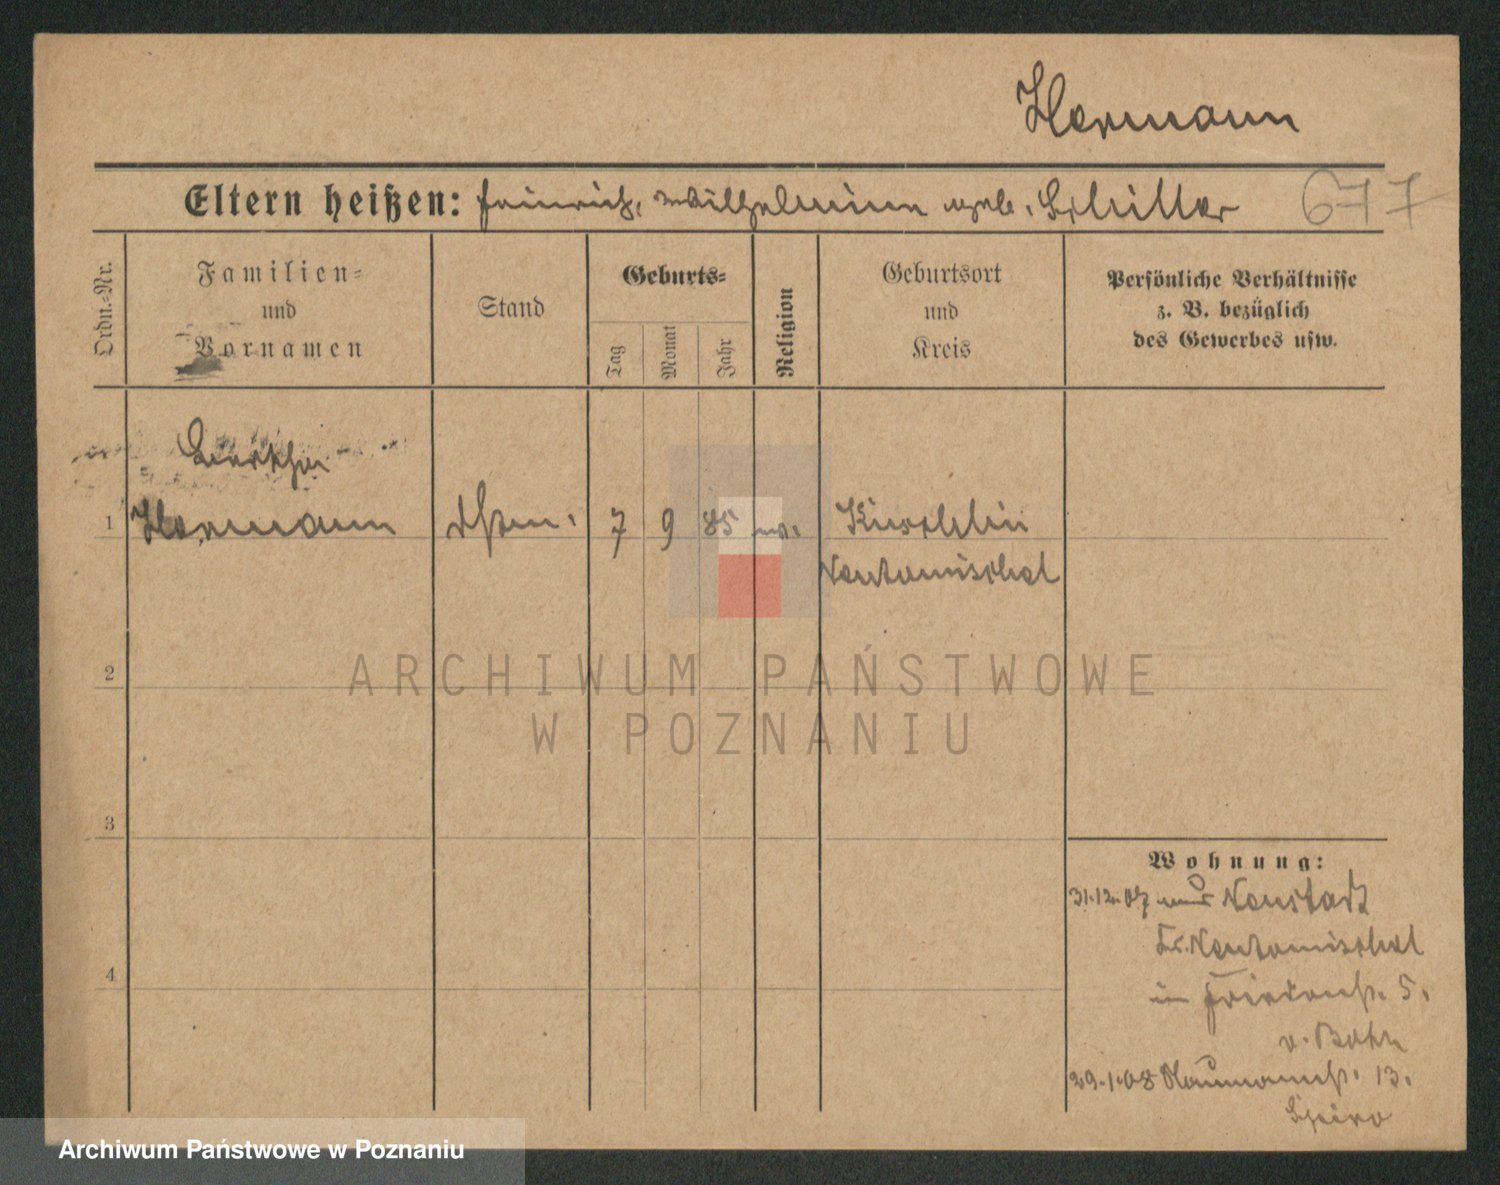 Hermann
Eltern heißen: Heinrich, Wilhelmine geb. Schiller
677
Ordn.-Nr.
Familien-
und
Vornamen
Stand
Geburts-
Tag
Monat
Jahr
Religion
Geburtsort
und
Kreis
Persönliche Verhältnisse
z. B. bezüglich
des Gewerbes usw.
1
Hermann
7 9 85
Kuschlin
Neutomischel
ARCHIWUM PAŃSTWOWE
W POZNANIU
2
3
4
Wohnung:
31.12.07 aus Neustadt
Kr. Neutomischel
in 5.
v.
29.1.08 Naumannstr. 13.
Spiro
Archiwum Państwowe w Poznaniu